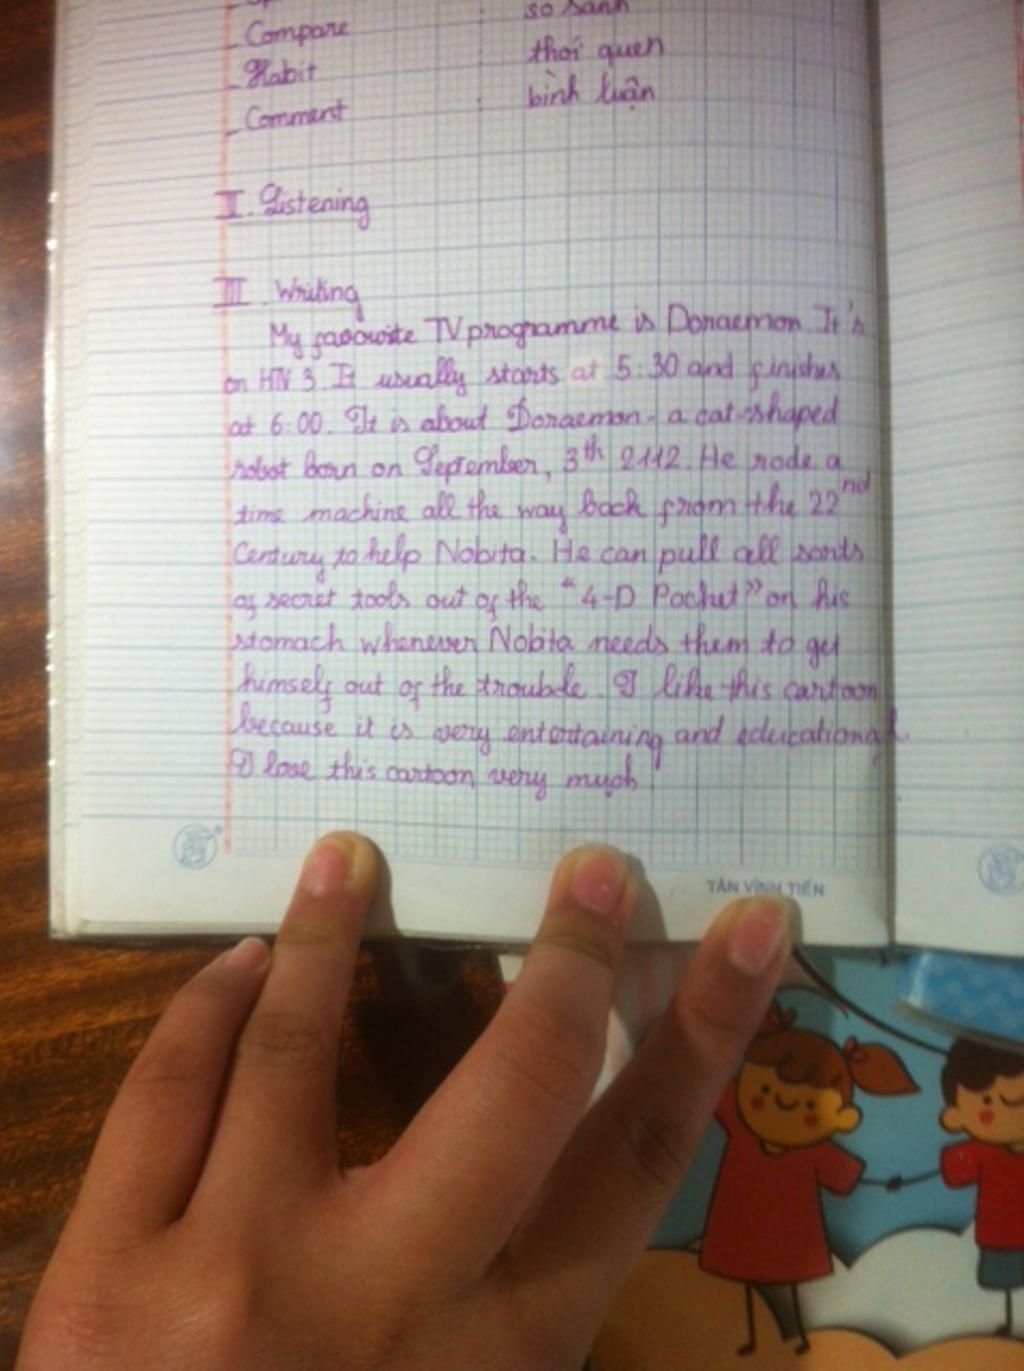 Compare : so sánh
Habit : thói quen
Comment : bình luận
II. Listening
III Writing
My favowite TV programme is Doraemon. It's
on HTV 3. It usually starts at 5:30 and finishes
at 6:00. It is about Doraemon - a cat-shaped
robot born on September, 3th 2112. He rode a
time machine all the way back from the 22nd
Century to help Nobita. He can pull all sorts
of secret tools out of the "4-D Pocket" on his
stomach whenever Nobita needs them to get
himself out of the trouble. I like this cartoon
because it is very entertaining and educational.
I love this cartoon very much!
TÂN VĨNH TIẾN